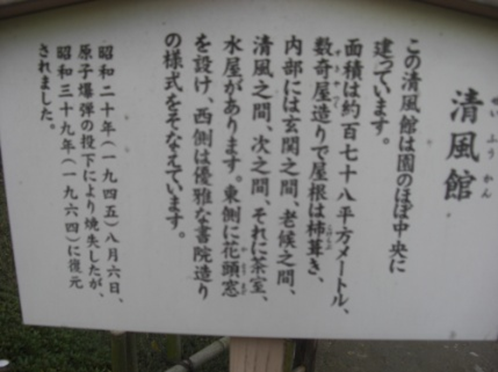 せいふうかん
清風館
この清風館は園のほぼ中央に
建っています。
面積は約百七十八平方メートル、
数奇屋造りで屋根は柿葺き、
内部には玄関之間、老候之間、
清風之間、次之間、それに茶室、
水屋があります。東側に花頭窓
を設け、西側は優雅な書院造り
の様式をそなえています。
昭和二十年(一九四五)八月六日、
原子爆弾の投下により焼失したが、
昭和三十九年(一九六四)に復元
されました。